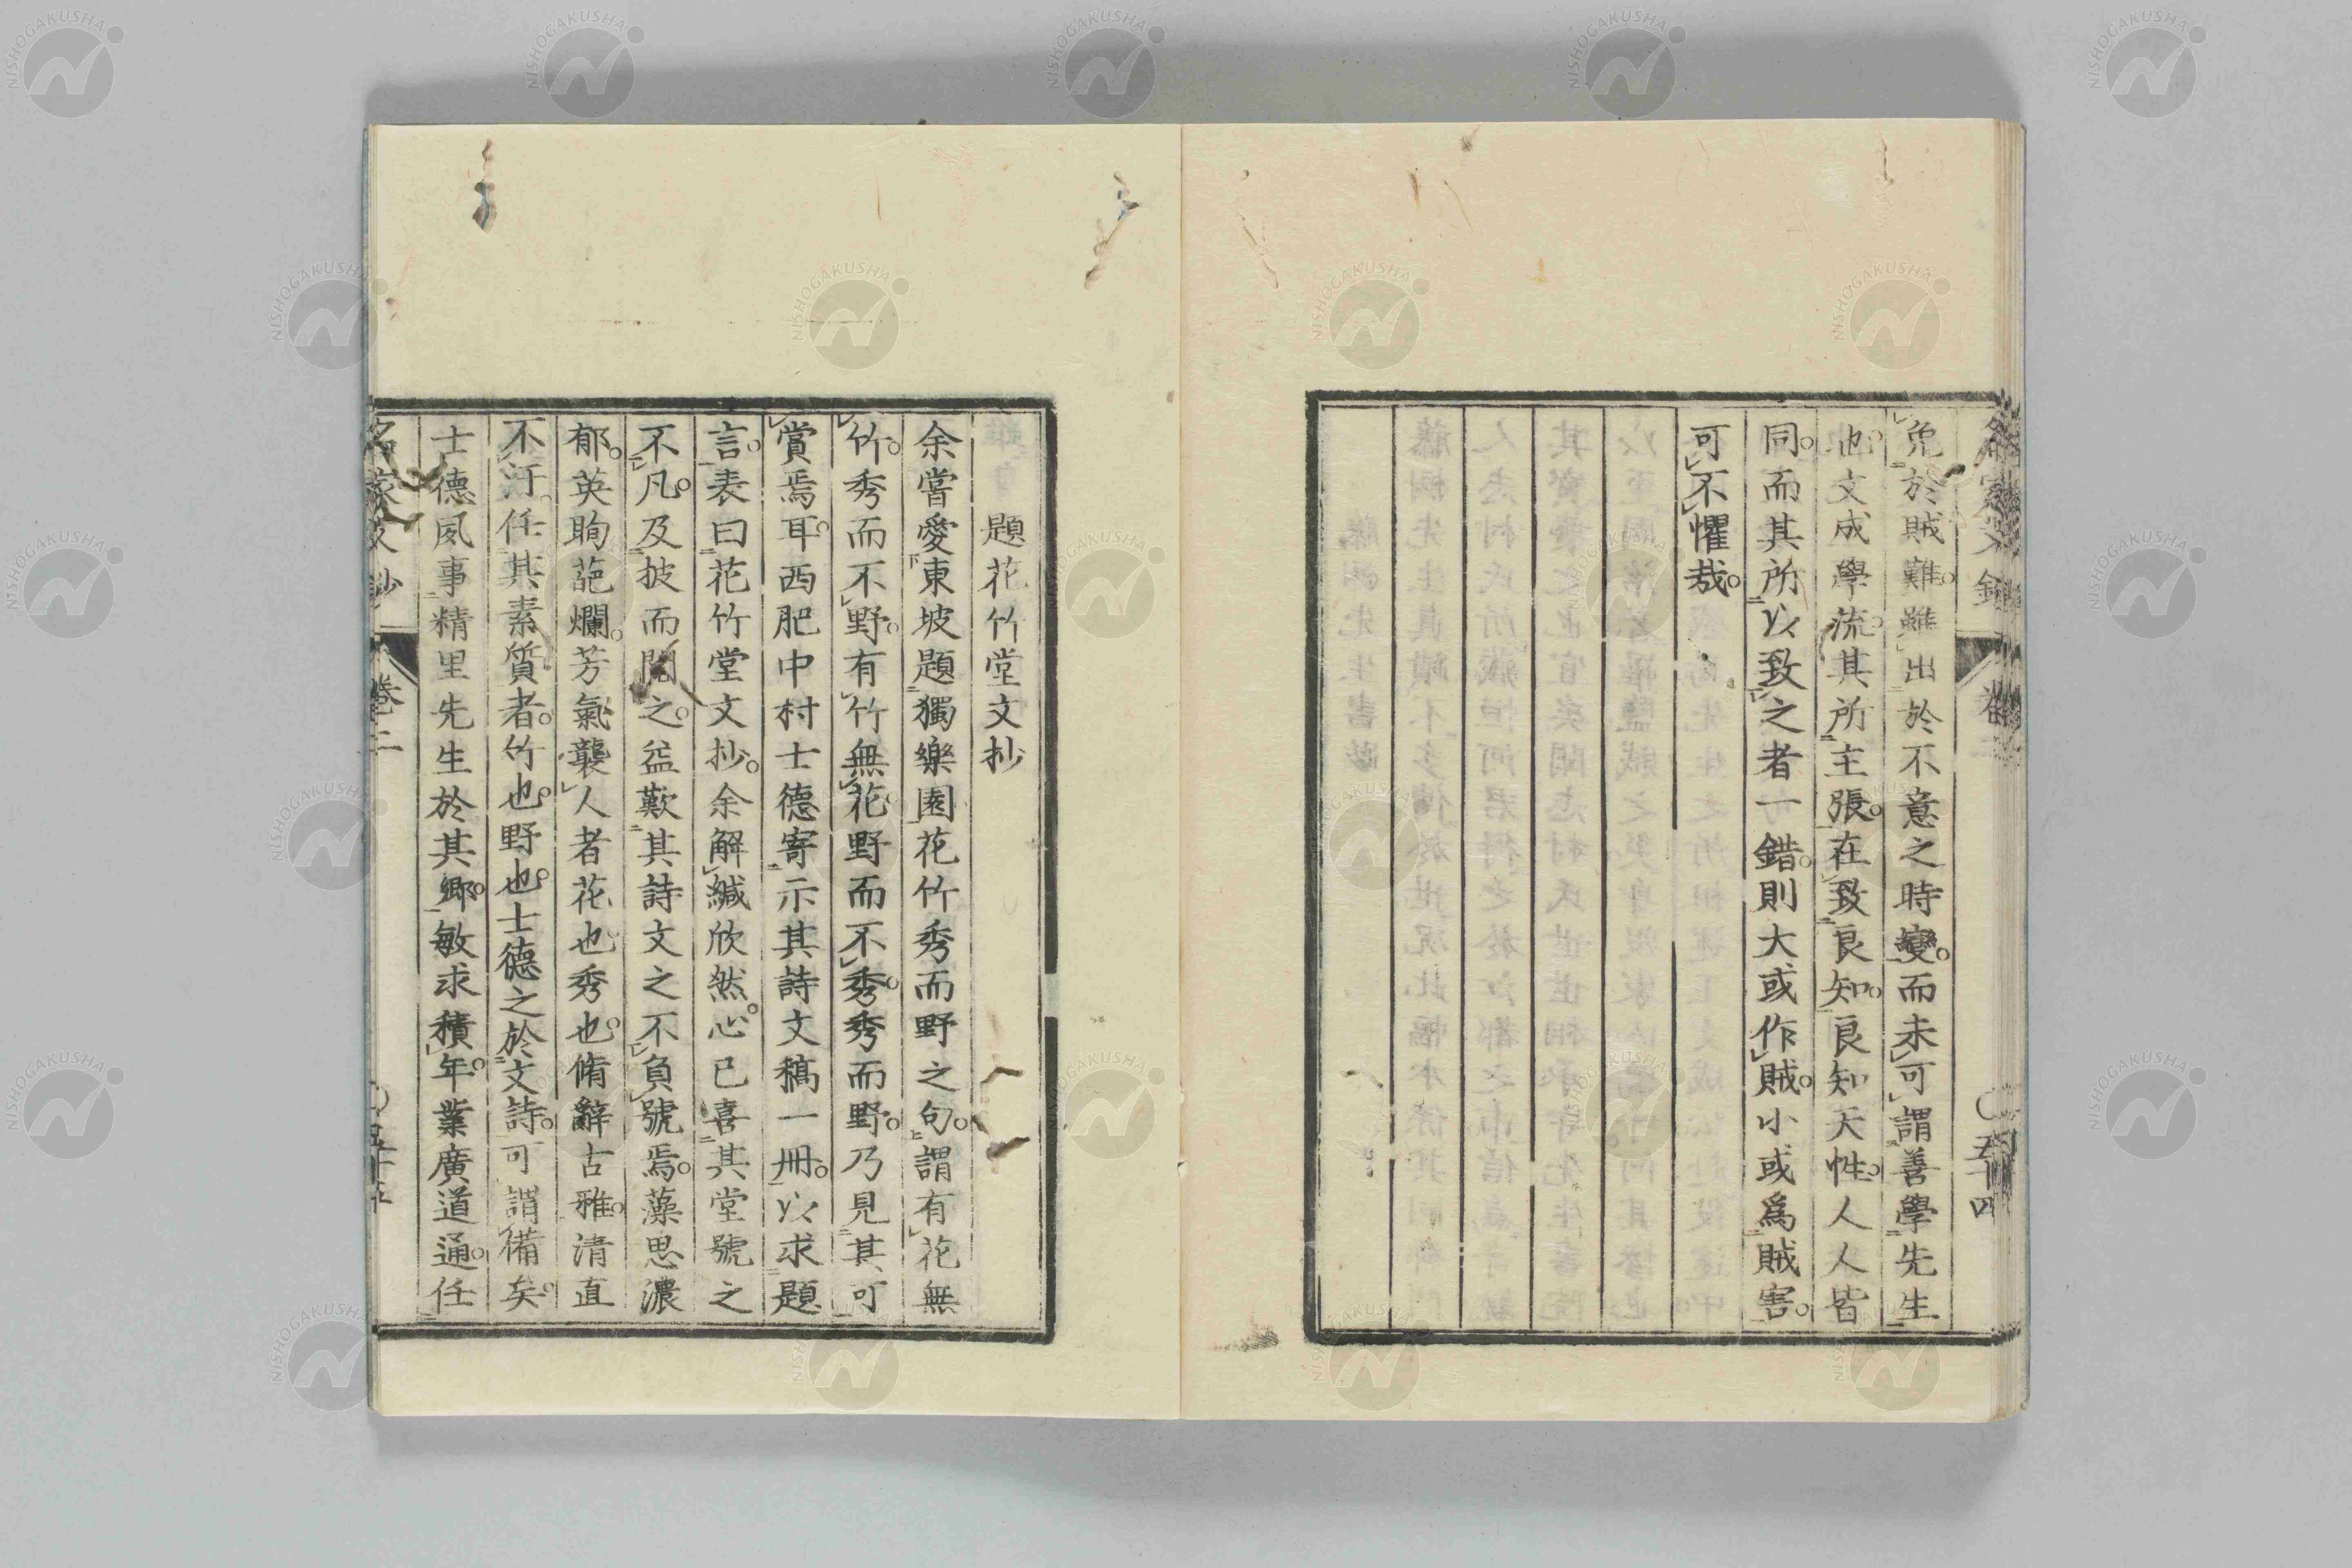 免於賊難。雖出於不意之時變。而未可謂善學先生
也。文成學流。其所主張。在致良知。良知天性。人人皆
同。而其所以致之者一錯。則大或作賊。小或爲賊害。
可不懼哉。
題花竹堂文抄
余嘗愛東坡題獨樂園花竹秀而野之句。謂有花無
竹。秀而不野。有竹無花。野而不秀。秀而野。乃見其可
賞焉耳。西肥中村士德寄示其詩文稿一冊。以求題
言。表曰花竹堂文抄。余解緘欣然。心已喜其堂號之
不凡。及披而閱之。益歎其詩文之不負號焉。藻思濃
郁。英眴葩爛。芳氣襲人者花也。秀也。脩辭古雅。清直
不汙。任其素質者。竹也。野也。士德之於文詩。可謂備矣。
士德夙事精里先生於其鄉。敏求積年。業廣道通。任
名家文抄 卷二 〇五十五
卷二 〇五十四
NISHOGAKUSHA